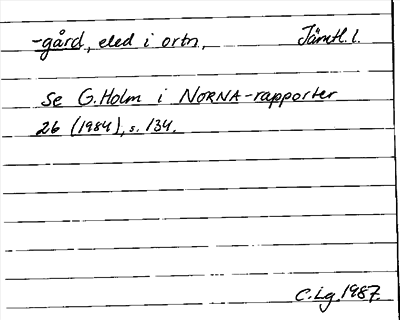 -gård, eled i ortn. Jämtl. l.
Se G. Holm i NORNA-rapporter
26 (1984), s. 134.
C. Lg 1987.